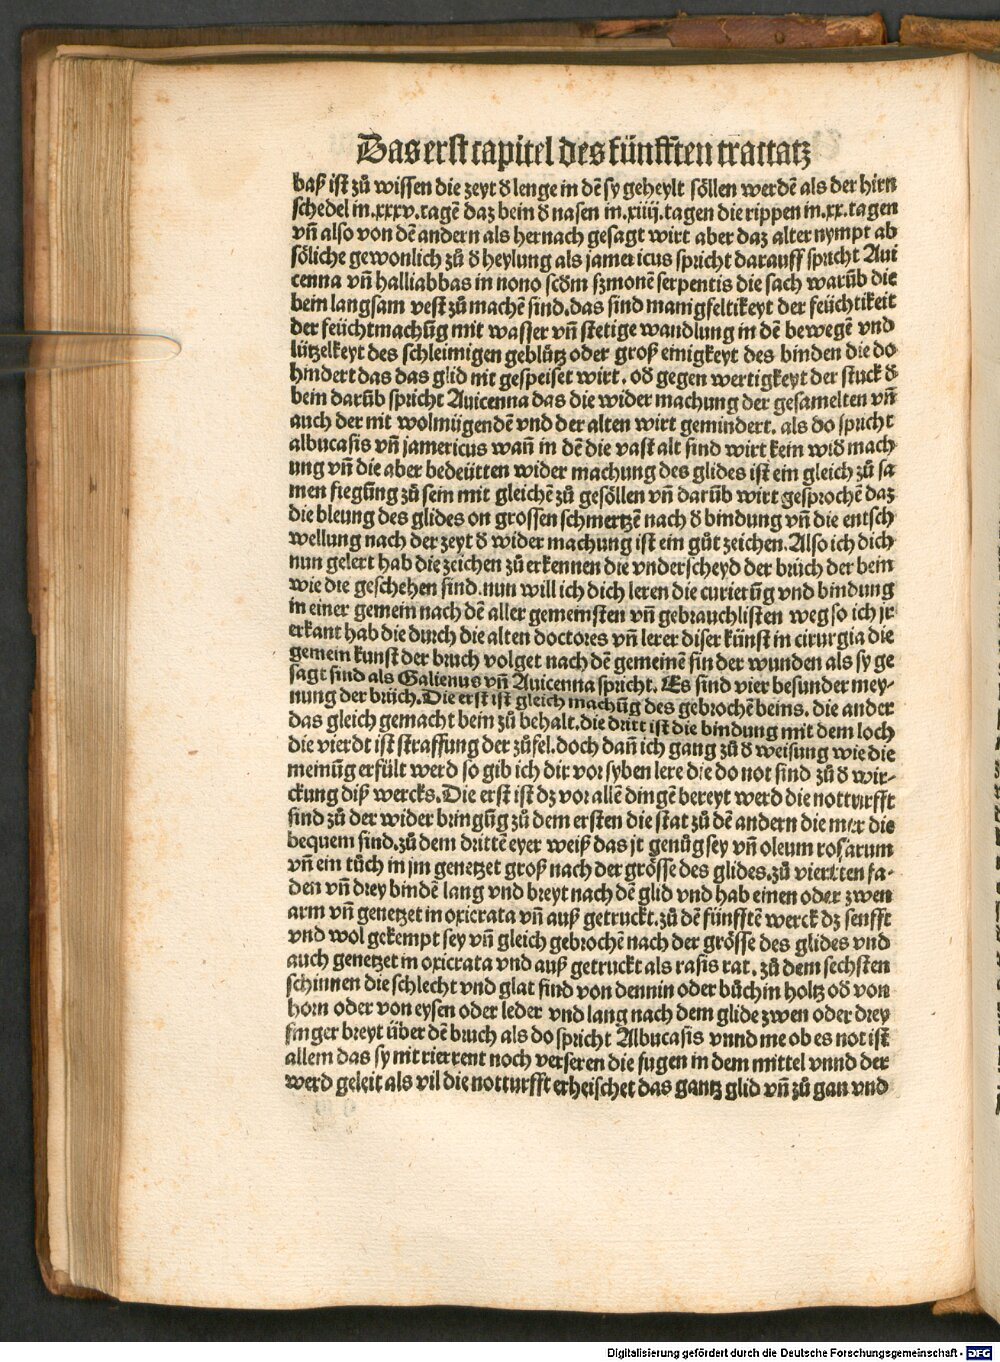 Das erst capitel des fünfften tractatz
baß ist zů wissen die zeyt ð lenge in dē sy geheylt söllen werdē als der hirn
schedel in .xxxv. tagē daz bein ð nasen in .xiiij. tagen die rippen in .xx. tagen
vn̄ also von dē andern als hernach gesagt wirt aber daz alter nympt ab
söliche gewonlich zů ð heylung als jamericus spricht darauff spricht Aui
cenna vn̄ halliabbas in nono scd̄m sʒmonē serpentis die sach warūb die
bein langsam vest zů machē sind. das sind manigfeltikeyt der feüchtikeit
der feüchtmachūg mit wasser vn̄ stetige wandlung in dē bewegē vnd
lützelkeyt des schleimigen geblütz oder groß einigkeyt des binden die do
hindert das das glid nit gespeiset wirt. oð gegen wertigkeyt der stuck ð
bein darūb spricht Auicenna das die wider machung der gesamelten vn̄
auch der nit wolmügendē vnd der alten wirt gemindert. als do spricht
albucasis vn̄ jamericus wan̄ in dē die vast alt sind wirt kein wið mach
ung vn̄ die aber bedeütten wider machung des glides ist ein gleich zů sa
men fiegūng zů sein mit gleichē zů gesöllen vn̄ darūb wirt gesprochē daz
die bleung des glides on grossen schmertzē nach ð bindung vn̄ die entsch
wellung nach der zeyt ð wider machung ist ein gůt zeichen. Also ich dich
nun gelert hab die zeichen zů erkennen die vnderscheyd der brüch der bein
wie die geschehen sind. nun will ich dich leren die curierūg vnd bindung
in einer gemein nach dē aller gemeinsten vn̄ gebrauchlisten weg so ich jr
erkant hab die durch die alten doctores vn̄ lerer diser künst in cirurgia die
gemein kunst der bruch volget nach dē gemeinē sin der wunden als sy ge
sagt sind als Galienus vn̄ Auicenna spricht. Es sind vier besunder mey-
nung der brüch. Die erst ist gleich machūg des gebrochē beins. die ander
das gleich gemacht bein zů behalt. die dritt ist die bindung mit dem loch
die vierdt ist straffung der zůfel. doch dan̄ ich gang zů ð weisung wie die
meinūg erfült werd so gib ich dir vor syben lere die do not sind zů ð wir-
ckung diß wercks. Die erst ist dz vor allē dingē bereyt werd die notturfft
sind zů der wider bringūg zů dem ersten die stat zů dē andern die mer die
bequem sind. zů dem drittē eyer weiß das jr genůg sey vn̄ oleum rosarum
vn̄ ein tůch in jm genetzet groß nach der grösse des glides. zů vierten fa-
den vn̄ drey bindē lang vnd breyt nach dē glid vnd hab einen oder zwen
arm vn̄ genetzet in oxicrata vn̄ auß getruckt. zů dē fünfftē werck dz senfft
vnd wol gekempt sey vn̄ gleich gebrochē nach der grösse des glides vnd
auch genetzet in oxicrata vnd auß getruckt als rasis rat. zů dem sechsten
schinnen die schlecht vnd glat sind von dennin oder bůchin holtz oð von
horn oder von eysen oder leder vnd lang nach dem glide zwen oder drey
finger breyt über dē bruch als do spricht Albucasis vnnd me ob es not ist
allem das sy nit rierrent noch verseren die fugen in dem mittel vnnd der
werd geleit als vil die notturfft erheischet das gantz glid vn̄ zů gan vnd
Digitalisierung gefördert durch die Deutsche Forschungsgemeinschaft - DFG